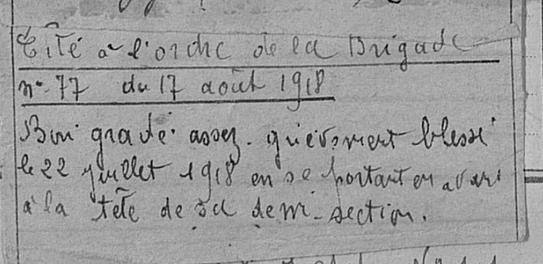 Cité à l'ordre de la Brigade
n° 77 du 17 août 1918
Bon gradé. assez grièvement blessé
le 22 juillet 1918 en se portant en avant
à la tête de sa demi-section.